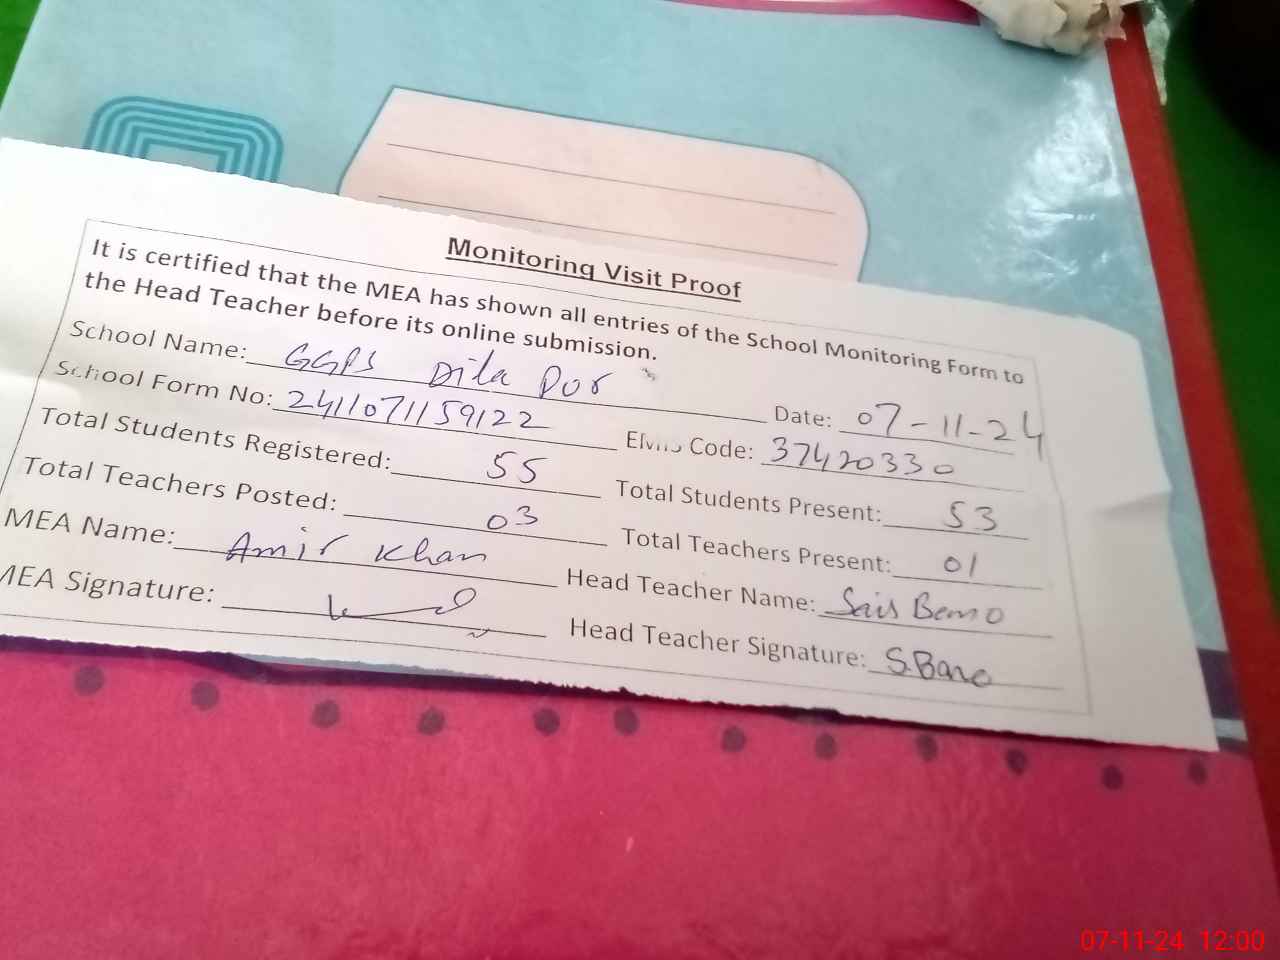 Monitoring Visit Proof
It is certified that the MEA has shown all entries of the School Monitoring Form to
the Head Teacher before its online submission.
School Name: GGPS Dila Dor Date: 07-11-24
School Form No: 2411071159122 EMIS Code: 37420330
Total Students Registered: 55 Total Students Present: 53
Total Teachers Posted: 03 Total Teachers Present: 01
MEA Name: Amir Khan Head Teacher Name: Sais Bano
MEA Signature: Head Teacher Signature: S.Bano
07-11-24 12:00